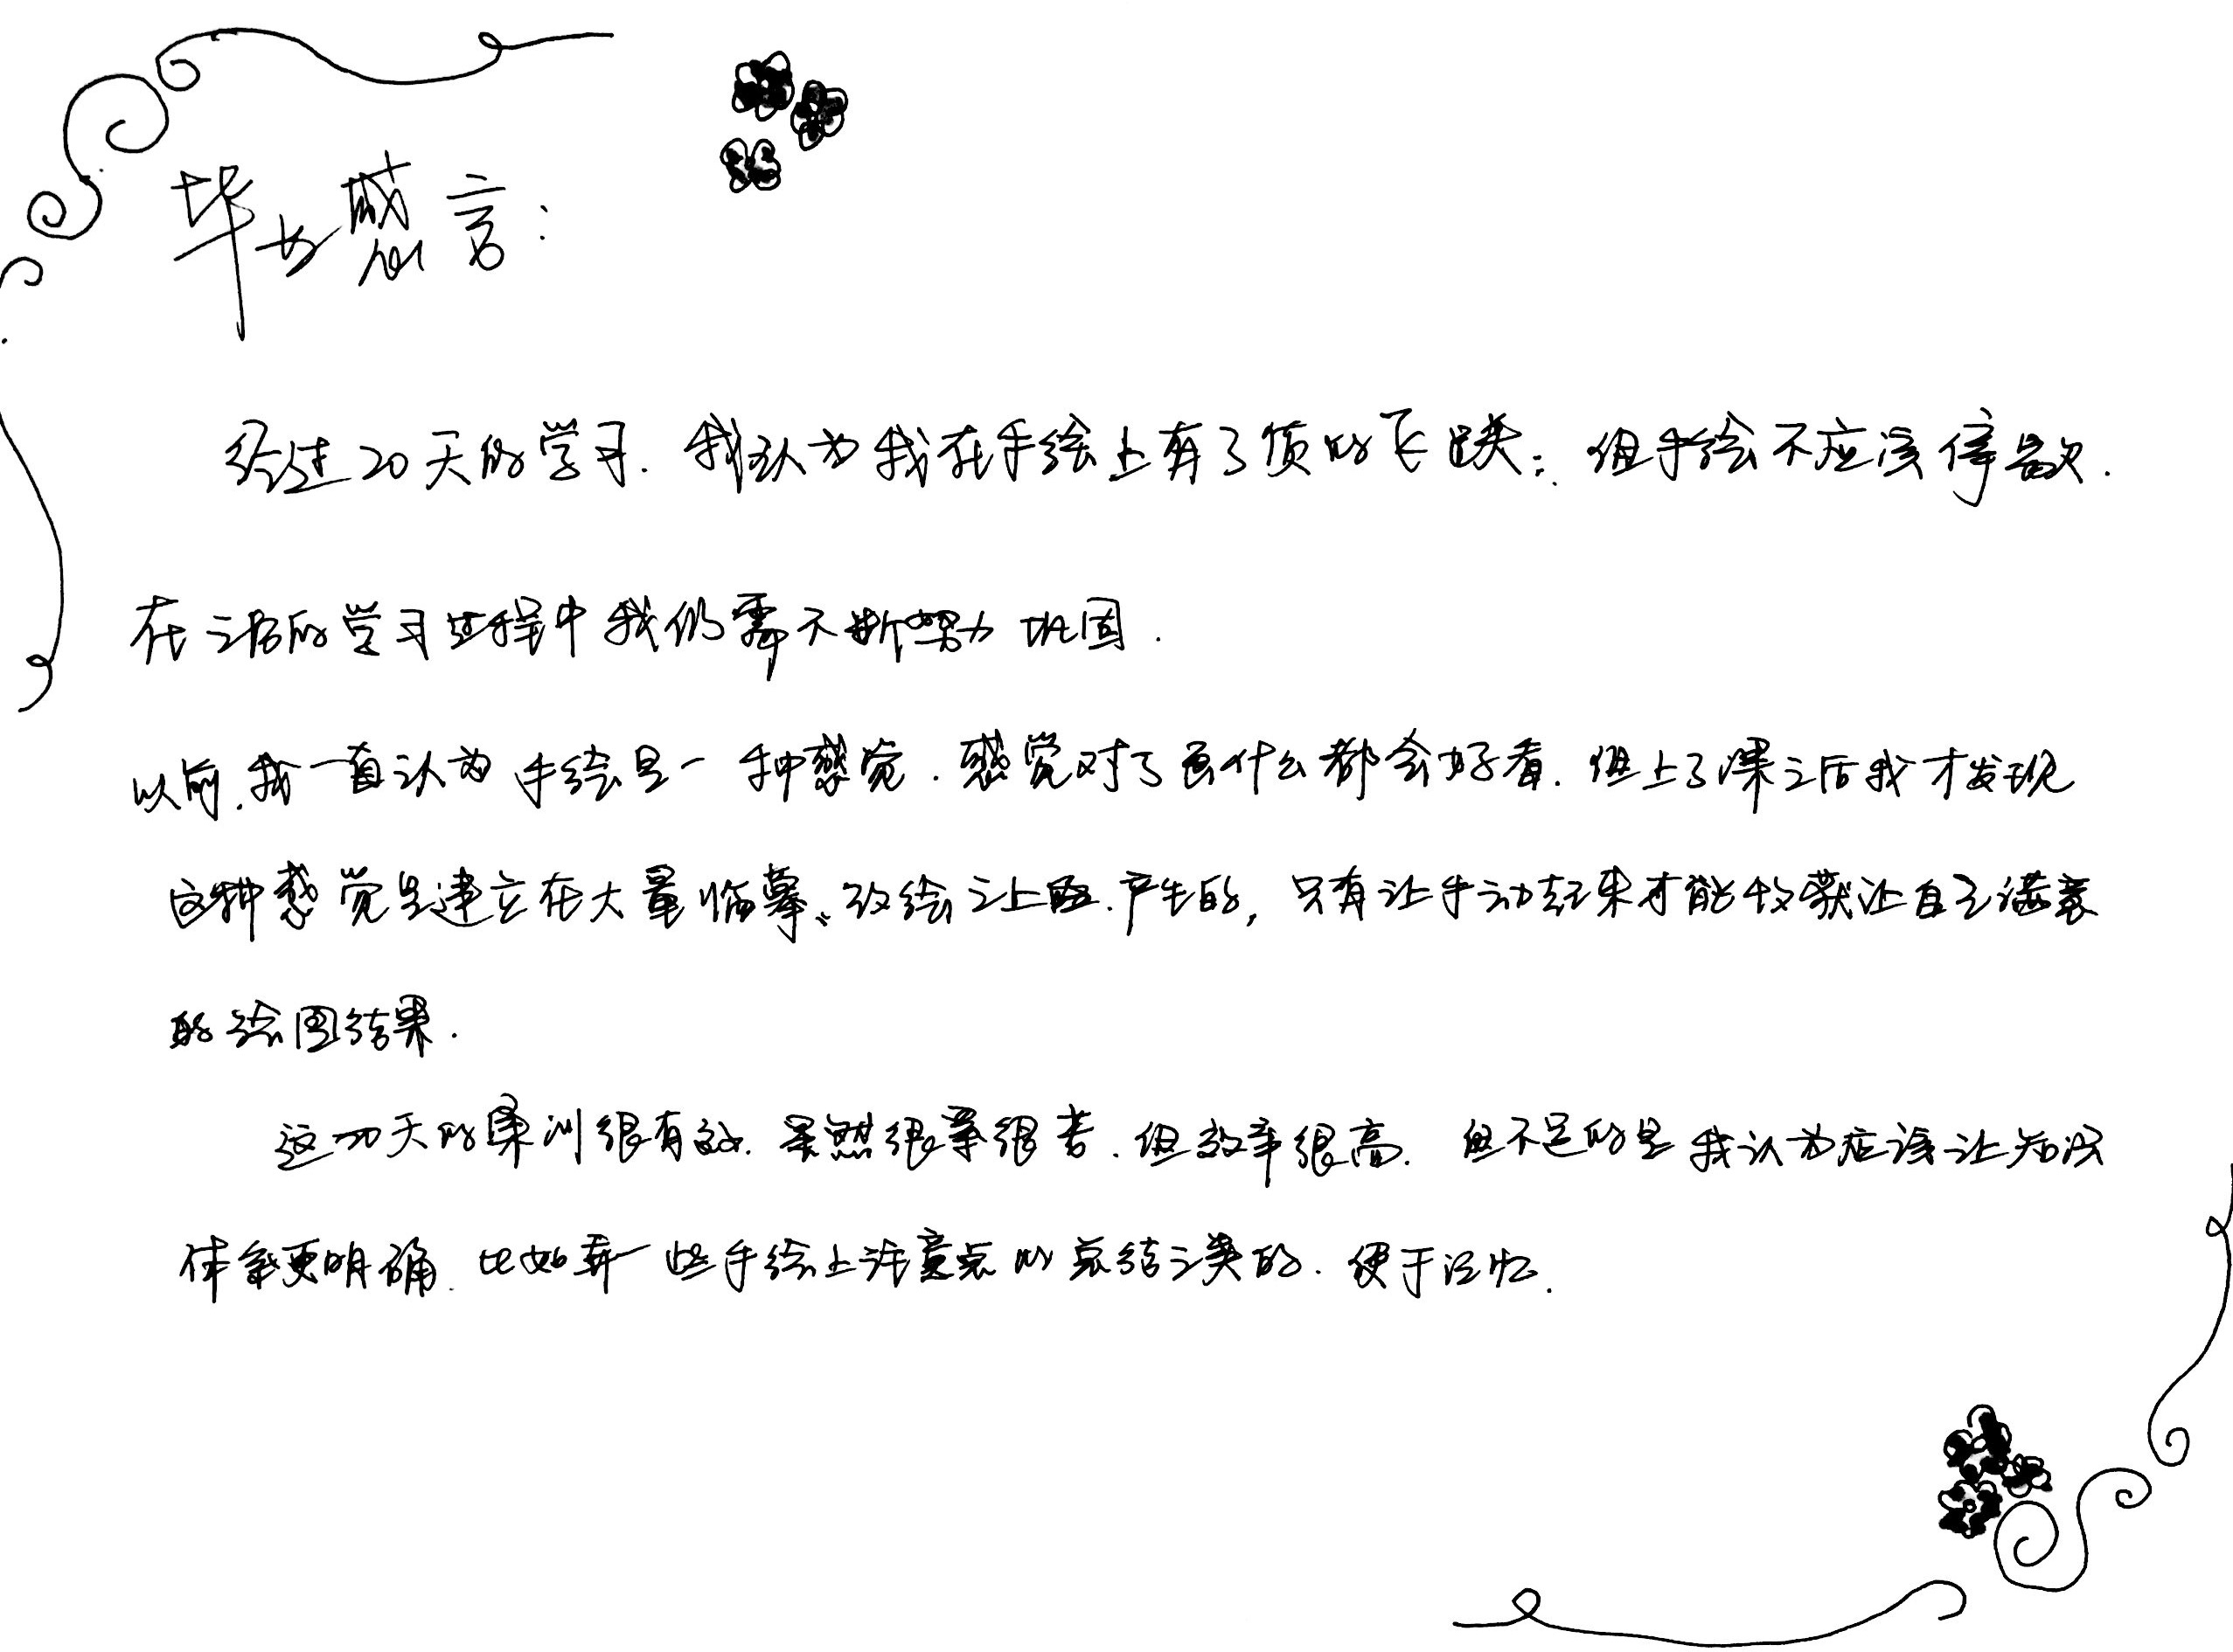 毕业感言:
经过20天的学习.我认为我在手绘上有了质的飞跃;但手绘不应该停歇.
在之后的学习过程中我仍需不断努力巩固.
以前.我一直认为手绘是一种感觉.感觉对了画什么都会好看.但上了课之后我才发现
这种感觉是建立在大量临摹、改绘之上.产生的,只有让手动起来才能收获让自己满意
的绘图结果.
这20天的集训很有效.虽然很累很苦.但效率很高.但不足的是我认为应该让知识
体系更明确.比如弄一些手绘上注意点的总结之类的.便于记忆.